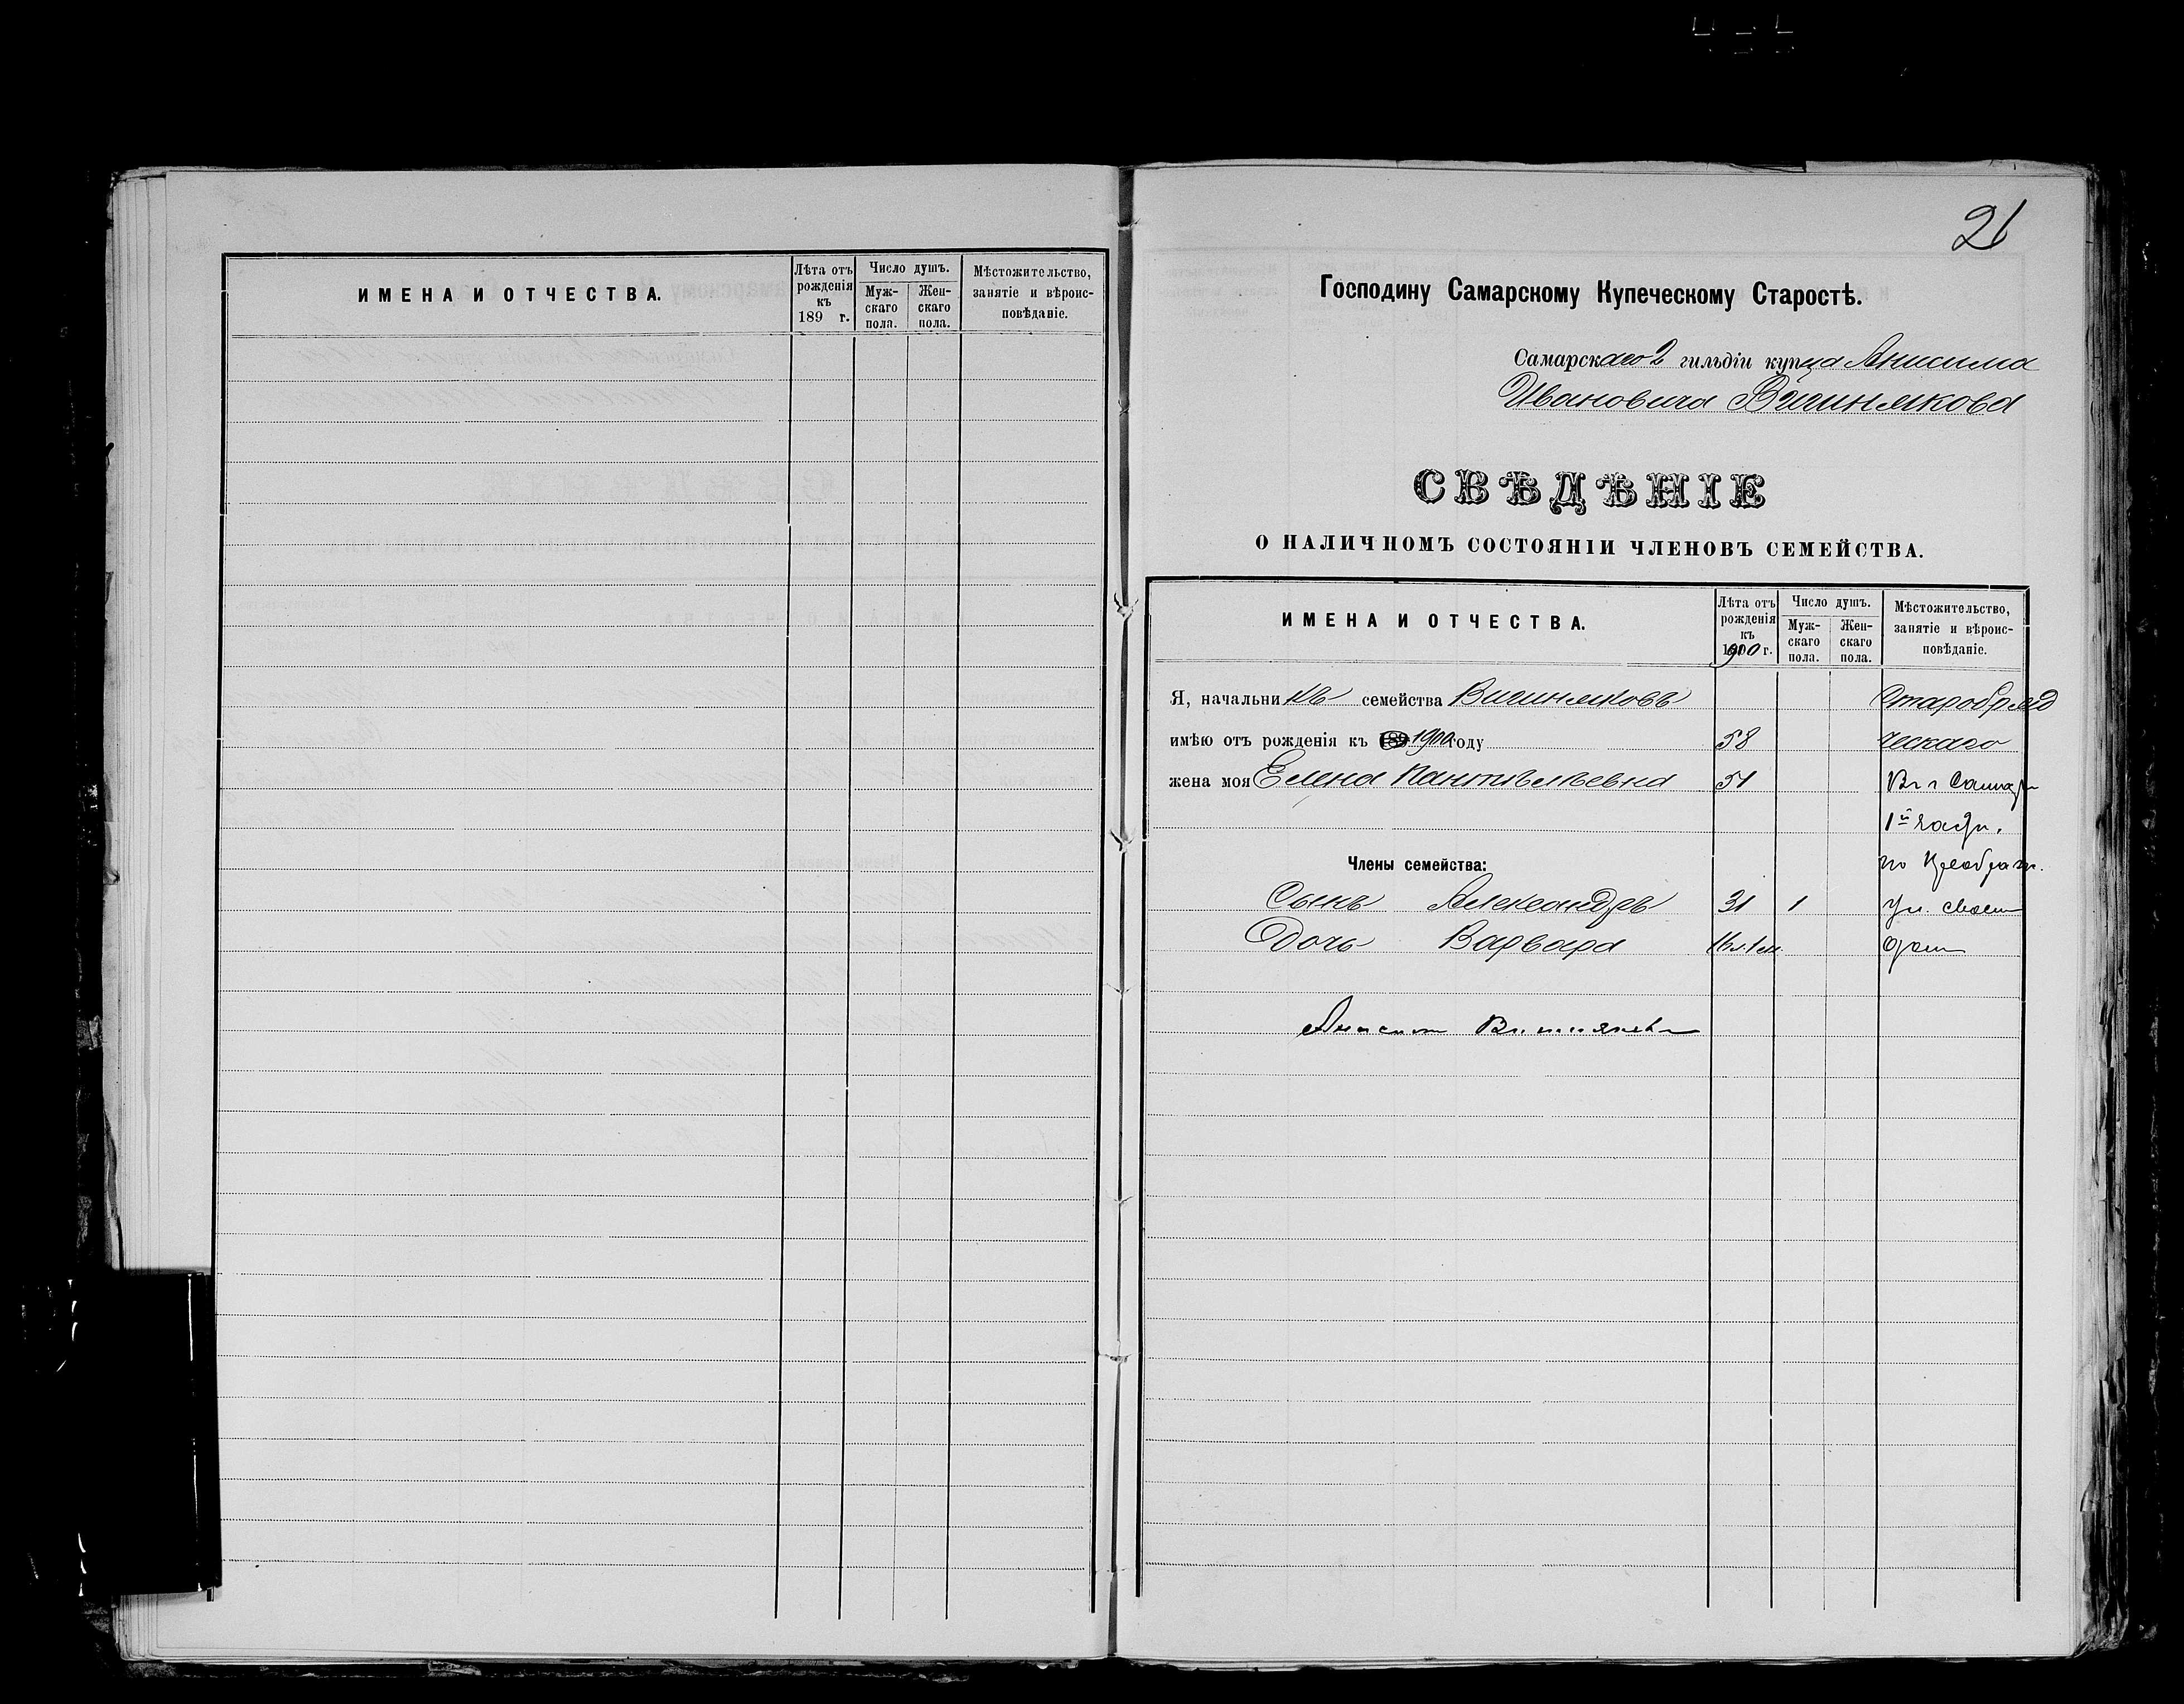 ИМЕНА И ОТЧЕСТВА.
Лѣта отъ рожденія къ 189 г.
Число душъ.
Мужскаго пола.
Женскаго пола.
Мѣстожительство, занятіе и вѣроисповѣданіе.
21
Господину Самарскому Купеческому Старостѣ.
Самарскаго 2 гильдіи купца Анисима
Ивановича
СВѢДѢНІЕ
О НАЛИЧНОМЪ СОСТОЯНІИ ЧЛЕНОВЪ СЕМЕЙСТВА.
ИМЕНА И ОТЧЕСТВА.
Лѣта отъ рожденія къ 1900 г.
Число душъ.
Мужскаго пола.
Женскаго пола.
Мѣстожительство, занятіе и вѣроисповѣданіе.
Я, начальникъ семейства Старобряд
имѣю отъ рожденія къ 1900 году 58 ческаго
жена моя Елена 51 Въ г Самарѣ
1й части.
Члены семейства: по Преображ.
Сынъ Александръ 31 1 ул. своем
Дочь Варвара 16 л. 1 м. дом
Анисим